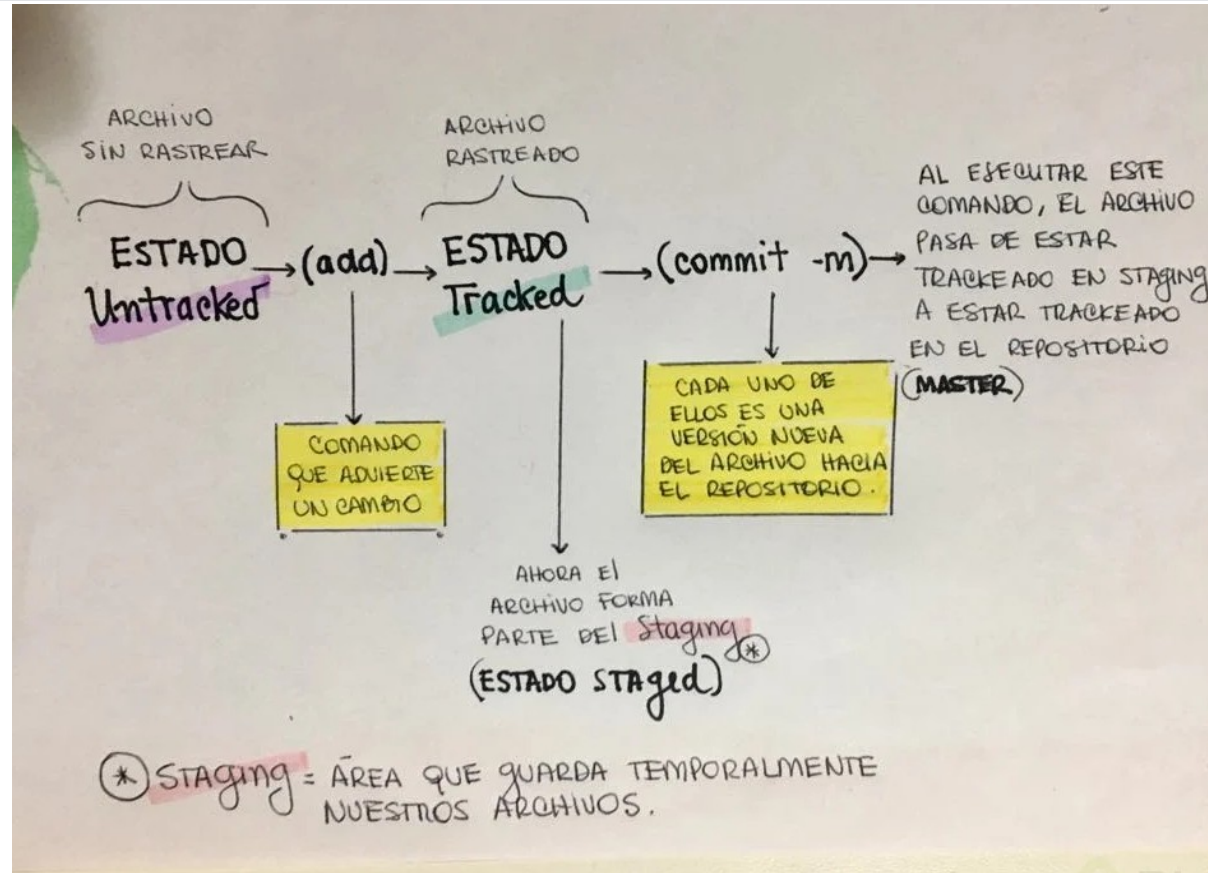 ARCHIVO
SIN RASTREAR
ARCHIVO
RASTREADO
ESTADO
Untracked
(add)
ESTADO
Tracked
(commit -m)
AL EJECUTAR ESTE
COMANDO, EL ARCHIVO
PASA DE ESTAR
TRACKEADO EN STAGING
A ESTAR TRACKEADO
EN EL REPOSITORIO
(MASTER)
COMANDO
QUE ADVIERTE
UN CAMBIO
CADA UNO DE
ELLOS ES UNA
VERSIÓN NUEVA
DEL ARCHIVO HACIA
EL REPOSITORIO.
AHORA El
ARCHIVO FORMA
PARTE DEl Staging
*
(ESTADO STAged)
* STAging = ÁREA QUE gUARDA TEMPORALMENTE
NUESTROS ARCHIVOS.